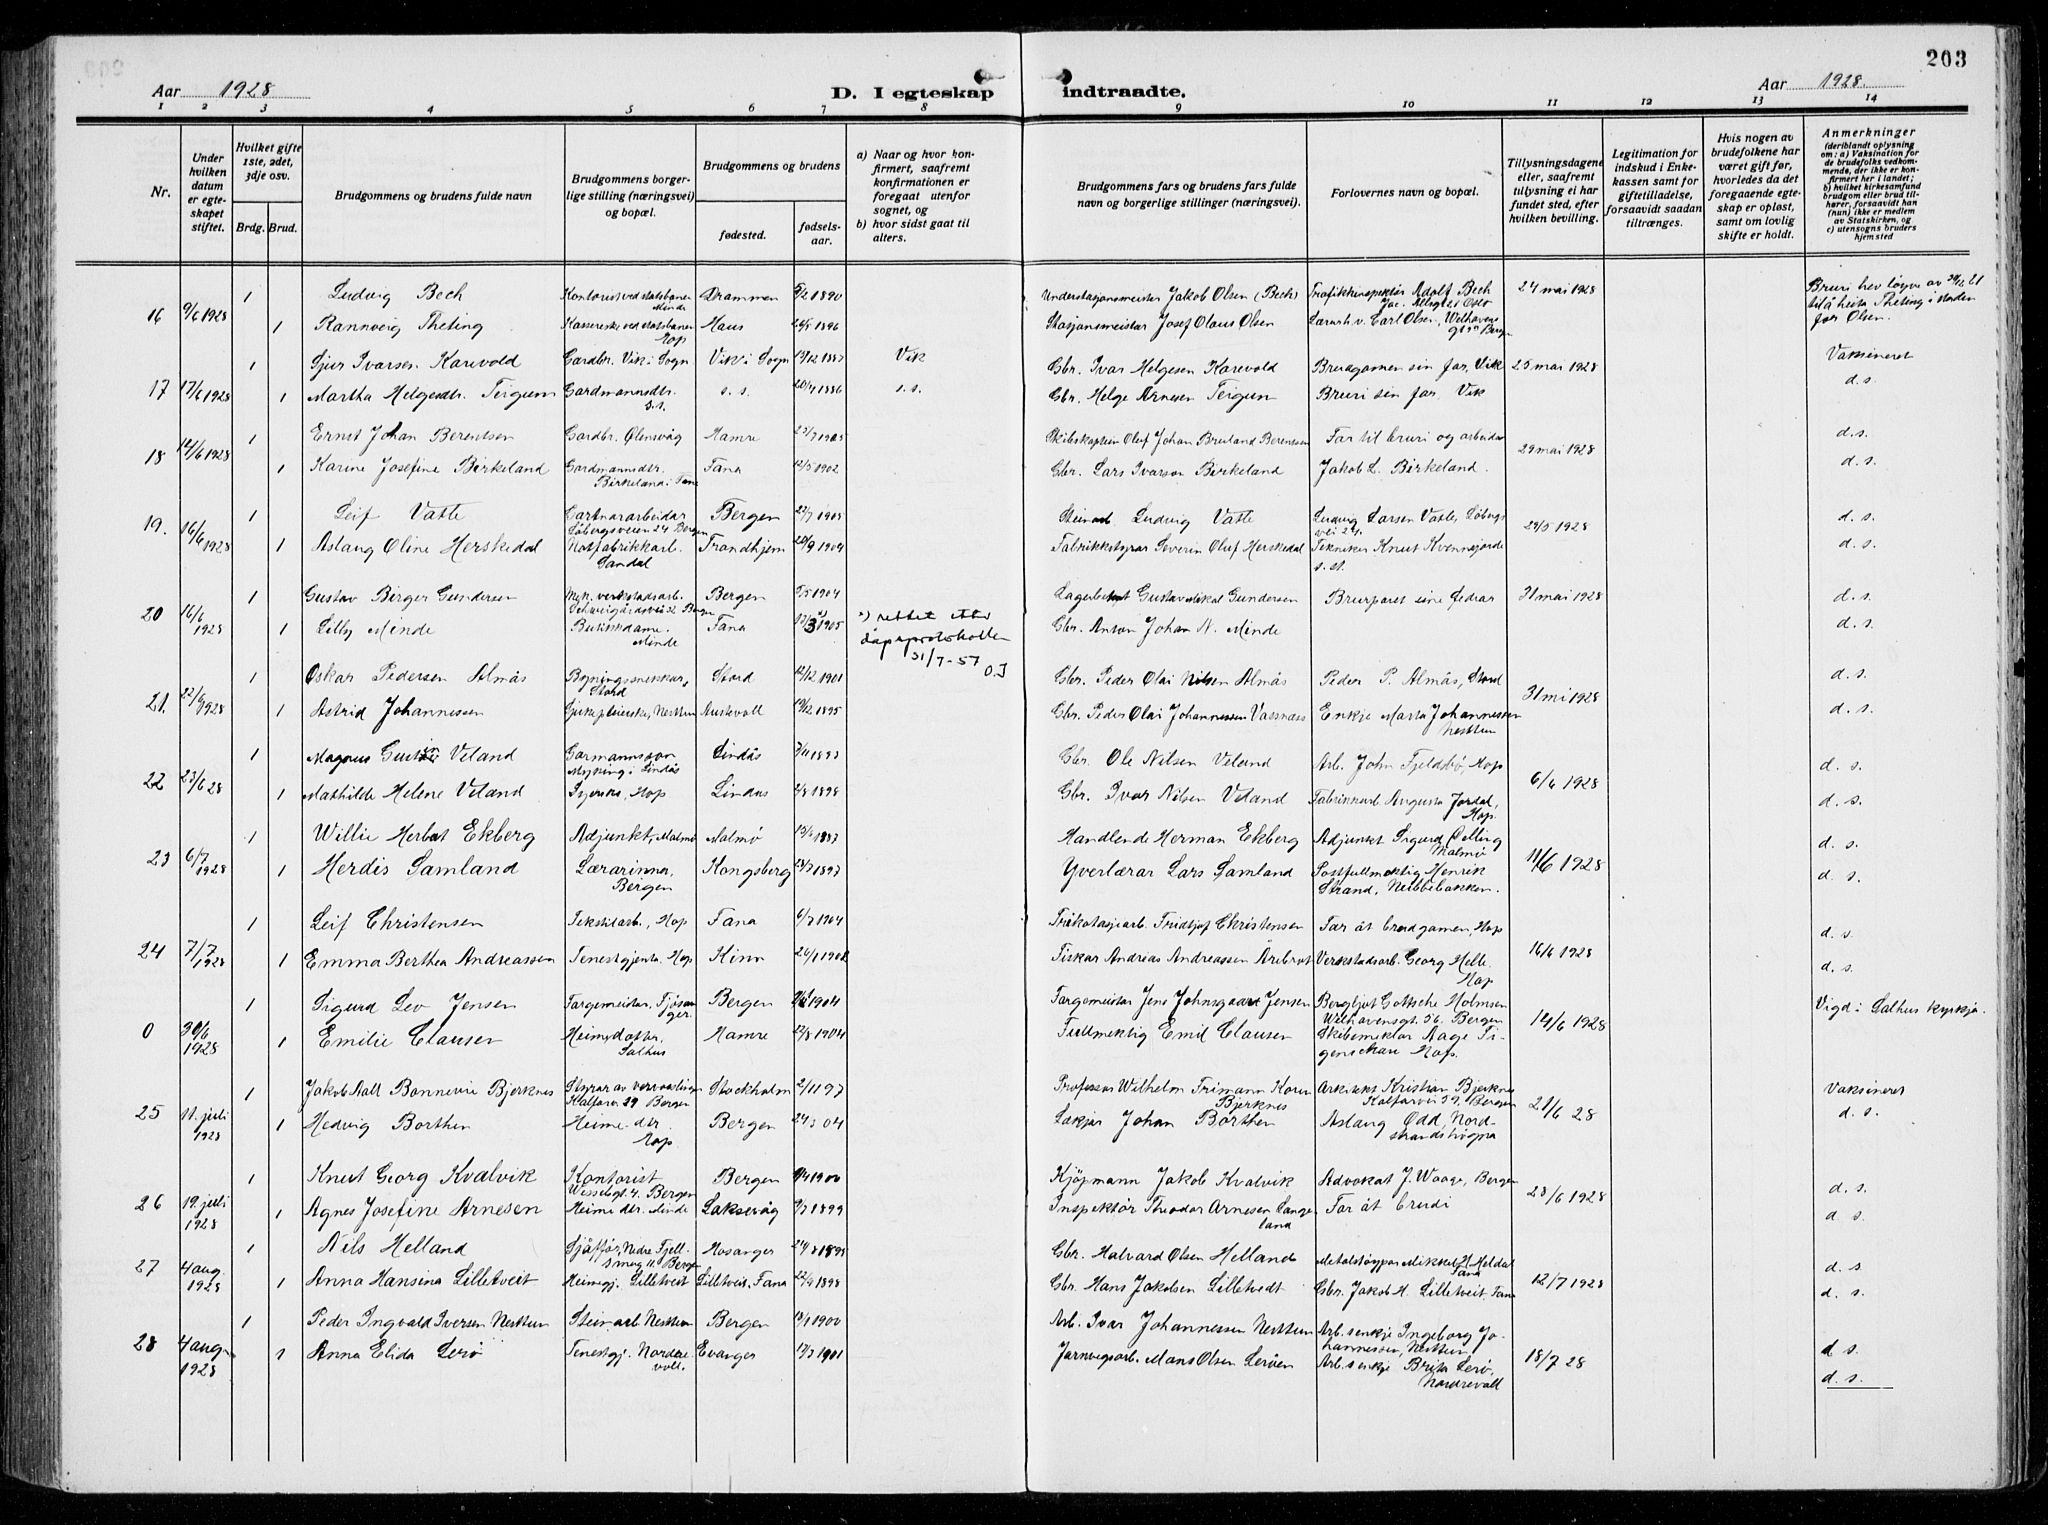 203
Aar 1928
D. I egteskap indtraadte.
Aar 1928.
1 2 3 4 5 6 7 8 9 10 11 12 13 14
Nr.
Under hvilken datum er egteskapet stiftet.
Hvilket gifte 1ste, 2det, 3dje osv.
Brdg. Brud.
Brudgommens og brudens fulde navn
Brudgommens borgerlige stilling (næringsvei) og bopæl.
Brudgommens og brudens
fødested.
fødselsaar.
a) Naar og hvor konfirmert, saafremt konfirmationen er foregaat utenfor sognet, og
b) hvor sidst gaat til alters.
Brudgommens fars og brudens fars fulde navn og borgerlige stillinger (næringsvei).
Forlovernes navn og bopæl.
Tillysningsdagene eller, saafremt tillysning ei har fundet sted, efter hvilken bevilling.
Legitimation for indskud i Enkekassen samt for giftetilladelse, forsaavidt saadan tiltrænges.
Hvis nogen av brudefolkene har været gift før, hvorledes da det foregaaende egteskap er opløst, samt om lovlig skifte er holdt.
Anmerkninger
(deriblandt oplysning om: a) Vaksination for de brudefolks vedkommende, der ikke er konfirmert her i landet; b) hvilket kirkesamfund brudgom eller brud tilhører, forsaavidt han (hun) ikke er medlem av Statskirken, og c) utensogns bruders hjemsted
1 Ludvig Bech Kontorist ved statsbanen Minde Drammen 1890 Understasjonsmeister Jakob Olsen (Bech) Trafikkinspektør Adolf Bech 24 mai 1928
16 9/6 1928 1 Rannveig Theting Kassererske ved statsbanen Hop Haus 1896 Stasjonsmeister Josef Olaus Olsen Carl Olsen, Welhavens
Bruri hev løyve av til å heita Theting i staden for Olsen.
1 Sjur Ivarsen Karevold Gardbr. Vik i Sogn Vik i Sogn Vik Gbr. Ivar Helgesen Karevold Brudgomen sin far, Vik 25 mai 1928 Vaksineret
17 17/6 1928 1 Martha Helgesdtr. Teigum Gardmannsdtr. s.s. s. s. 20/4 1886 s. s. Gbr. Helge Arnesen Teigum Bruri sin far, Vik d. s.
1 Ernst Johan Berentsen Gardbr. Ølensvåg Hamre Skibskaptein Oluf Johan Bruland Berentsen Far til bruri og arbeidar 29 mai 1928 d. s.
18 14/6 1928 1 Karine Josefine Birkeland Gardmannsdtr. Birkeland i Fana Fana 12/5 1902 Gbr. Lars Ivarson Birkeland Jakob L. Birkeland. d. s.
1 Leif Vatle Gartnararbeidar Bergen 22/7 1905 Steinarb Ludvig Vatle Ludvig Larsen Vatle, 29/5 1928 d. s.
19. 16/6 1928 1 Aslaug Oline Herskedal Notfabrikkarb. Sandal Trondhjem 20/9 1904 Fabrikkstyrar Severin Oluf Herskedal Tekniker Knut s. st. d. s.
1 Gustav Birger Gundersen Mek. verkstadsarb. Bergen 1904 Lagerbetjent Gustav Gundersen Brurparet sine fedrar 31 mai 1928 d. s.
20 16/6 1928 1 Lilly Minde Butikkdame. Minde Fana 1905 x) rettet etter dåpsprotokollen 31/7-57 O.J Gbr. Anton Johan N. Minde d. s.
1 Oskar Pedersen Almås Bygningssnekkar, Stord Stord 12/12 1901 Gbr. Peder Olai Nilsen Almås Peder P. Almås, Stord 31 mi 1928 d. s.
21. 22/6 1928 1 Astrid Johannessen Sjukepleierske, Nesttun Austevoll 1895 Gbr. Peder Olai Johannessen Vassnes Enkje Marta Johannessen Nesttun d. s.
1 Magnus Veland Garmannsson Myking i Lindås Lindås 1893 Gbr. Ole Nilsen Veland Arb. John Fjeldsbø, Hop 6/6 1928 d. s.
22 23/6 28 1 Mathilde Helene Veland Syerske, Hop Lindås 1898 Gbr. Ivar Nilsen Veland Fabrikkarb. August Jordal, Hop. d. s.
1 Willie Herbert Ekberg Adjunkt, Malmø Malmø 1887 Handlende Herman Ekberg Adjunkt Sigurd Malmø 11/6 1928 d. s.
23 6/7 1928 1 Herdis Samland Lærarinna, Bergen Kongsberg 1897 Yverlærar Lars Samland Postfullmektig Henrik Strand, Nubbebakken. d. s.
1 Leif Christensen Tekstilarb., Hop Fana 6/7 1904 Trikotagearb. Fridtjof Christensen Far åt brudgomen, Hop 16/6 1928 d. s.
24 7/7 1928 1 Emma Berthea Andreassen Tenestgjenta, Hop Kinn 26/1 1908 Fiskar Andreas Andreassen Årebrot Verkstadsarb. Georg Helle. Hop d. s.
1 Sigurd Lev Jensen Fargemeister, Fjøsanger. Bergen 1904 Fargemeister Jens Johnsgaard Jensen Bergljot Gottsche Holmsen Welhavensgt. 56. Bergen 14/6 1928 Vigd i Salhus kyrkja.
0 30/6 1928 1 Emilie Clausen Heimedotter, Salhus Hamre 22/8 1904 Fullmektig Emil Clausen Skibsmeklar Aage Hop.
1 Jakob Aall Bonnevie Bjerknes Styrar av vervarslingen Kalfarv 29 Bergen Stockholm 2/11 97 Professor Wilhelm Frimann Koren Bjerknes Arkitekt Kristian Bjerknes Bergen 21/6 28 Vaksineret
25 11. juli 1928 1 Hedvig Borthen Heime-dtr. Hop. Bergen 04 Johan Borthen Aslaug Odd, Nordstrandshøgna d. s.
1 Knut Georg Kvalvik Kontorist Wesselsgt 4. Bergen Bergen 1900 Kjøpmann Jakob Kvalvik Advokat J. Waage, Bergen 28/6 1928 d. s.
26 19. juli 1928 1 Agnes Josefine Arnesen Heime dtr. Minde Laksevåg 1899 Inspektør Theodor Arnesen Langeland Far åt brudi d. s.
1 Nils Helland Sjåffør, Nedre Fjellsmug 11. Bergen Hosanger Gbr. Halvard Olsen Helland Metalstøypar Mikkel H. Meldal Fana 12/7 1928 d. s.
27 4 aug 1928 1 Anna Hansina Lilletveit Heimegj. Lilletveit Lilletveit, Fana 22/9 1898 Gbr. Hans Jakobsen Lilletvedt Gbr. Jakob H. Lilletveit Fana d. s.
1 Peder Ingvald Iversen Nesttun Steinarb Nesttun Bergen 1900 Arb. Ivar Johannessen Nesttun Arb.s enkje Ingeborg Johannessen, Nesttun 18/7 28 d s.
28 4 aug. 1928 1 Anna Elida Lerø Tenestgj. Nordrevoll. Evanger 1901 Jarnvegsarb. Mons Olsen Lerøen Arb.s enkje Brita Lerø, Nordrevoll d. s.